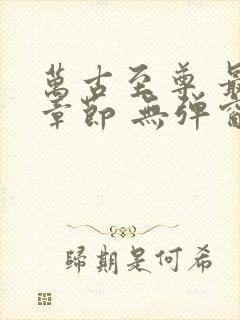 萬古至尊
章節 無彈
歸期是何希